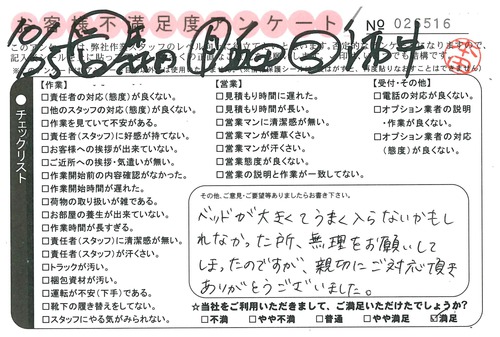 お客様不満足度アンケート
No 026516
チェックリスト
【作業】
□責任者の対応(態度)が良くない。
□他のスタッフの対応(態度)が良くない。
□作業を見ていて不安がある。
□責任者(スタッフ)に好感が持てない。
□お客様への挨拶が出来ていない。
□ご近所への挨拶・気遣いが無い。
□作業開始前の内容確認がなかった。
□作業開始時間が遅れた。
□荷物の取り扱いが雑である。
□お部屋の養生が出来ていない。
□作業時間が長すぎる。
□責任者(スタッフ)に清潔感が無い。
□責任者(スタッフ)が汗くさい。
□トラックが汚い。
□梱包資材が汚い。
□運転が不安(下手)である。
□靴下の履き替えをしてない。
□スタッフにやる気がみられない。
【営業】
□見積もり時間に遅れた。
□見積もり時間が長い。
□営業マンに清潔感が無い。
□営業マンが煙草くさい。
□営業マンが汗くさい。
□営業態度が良くない。
□営業の説明と作業が一致してない。
【受付・その他】
□電話の対応が良くない。
□オプション業者の説明
・作業が良くない。
□オプション業者の対応
(態度)が良くない。
その他、ご意見・ご要望等ありましたらお書き下さい。
ベッドが大きくてうまく入らないかもし
れなかった所、無理をお願いして
しまったのですが、親切にご対応頂き
ありがとうございました。
☆当社をご利用いただきまして、ご満足いただけたでしょうか?
□不満 □やや不満 □普通 □やや満足 ☑満足